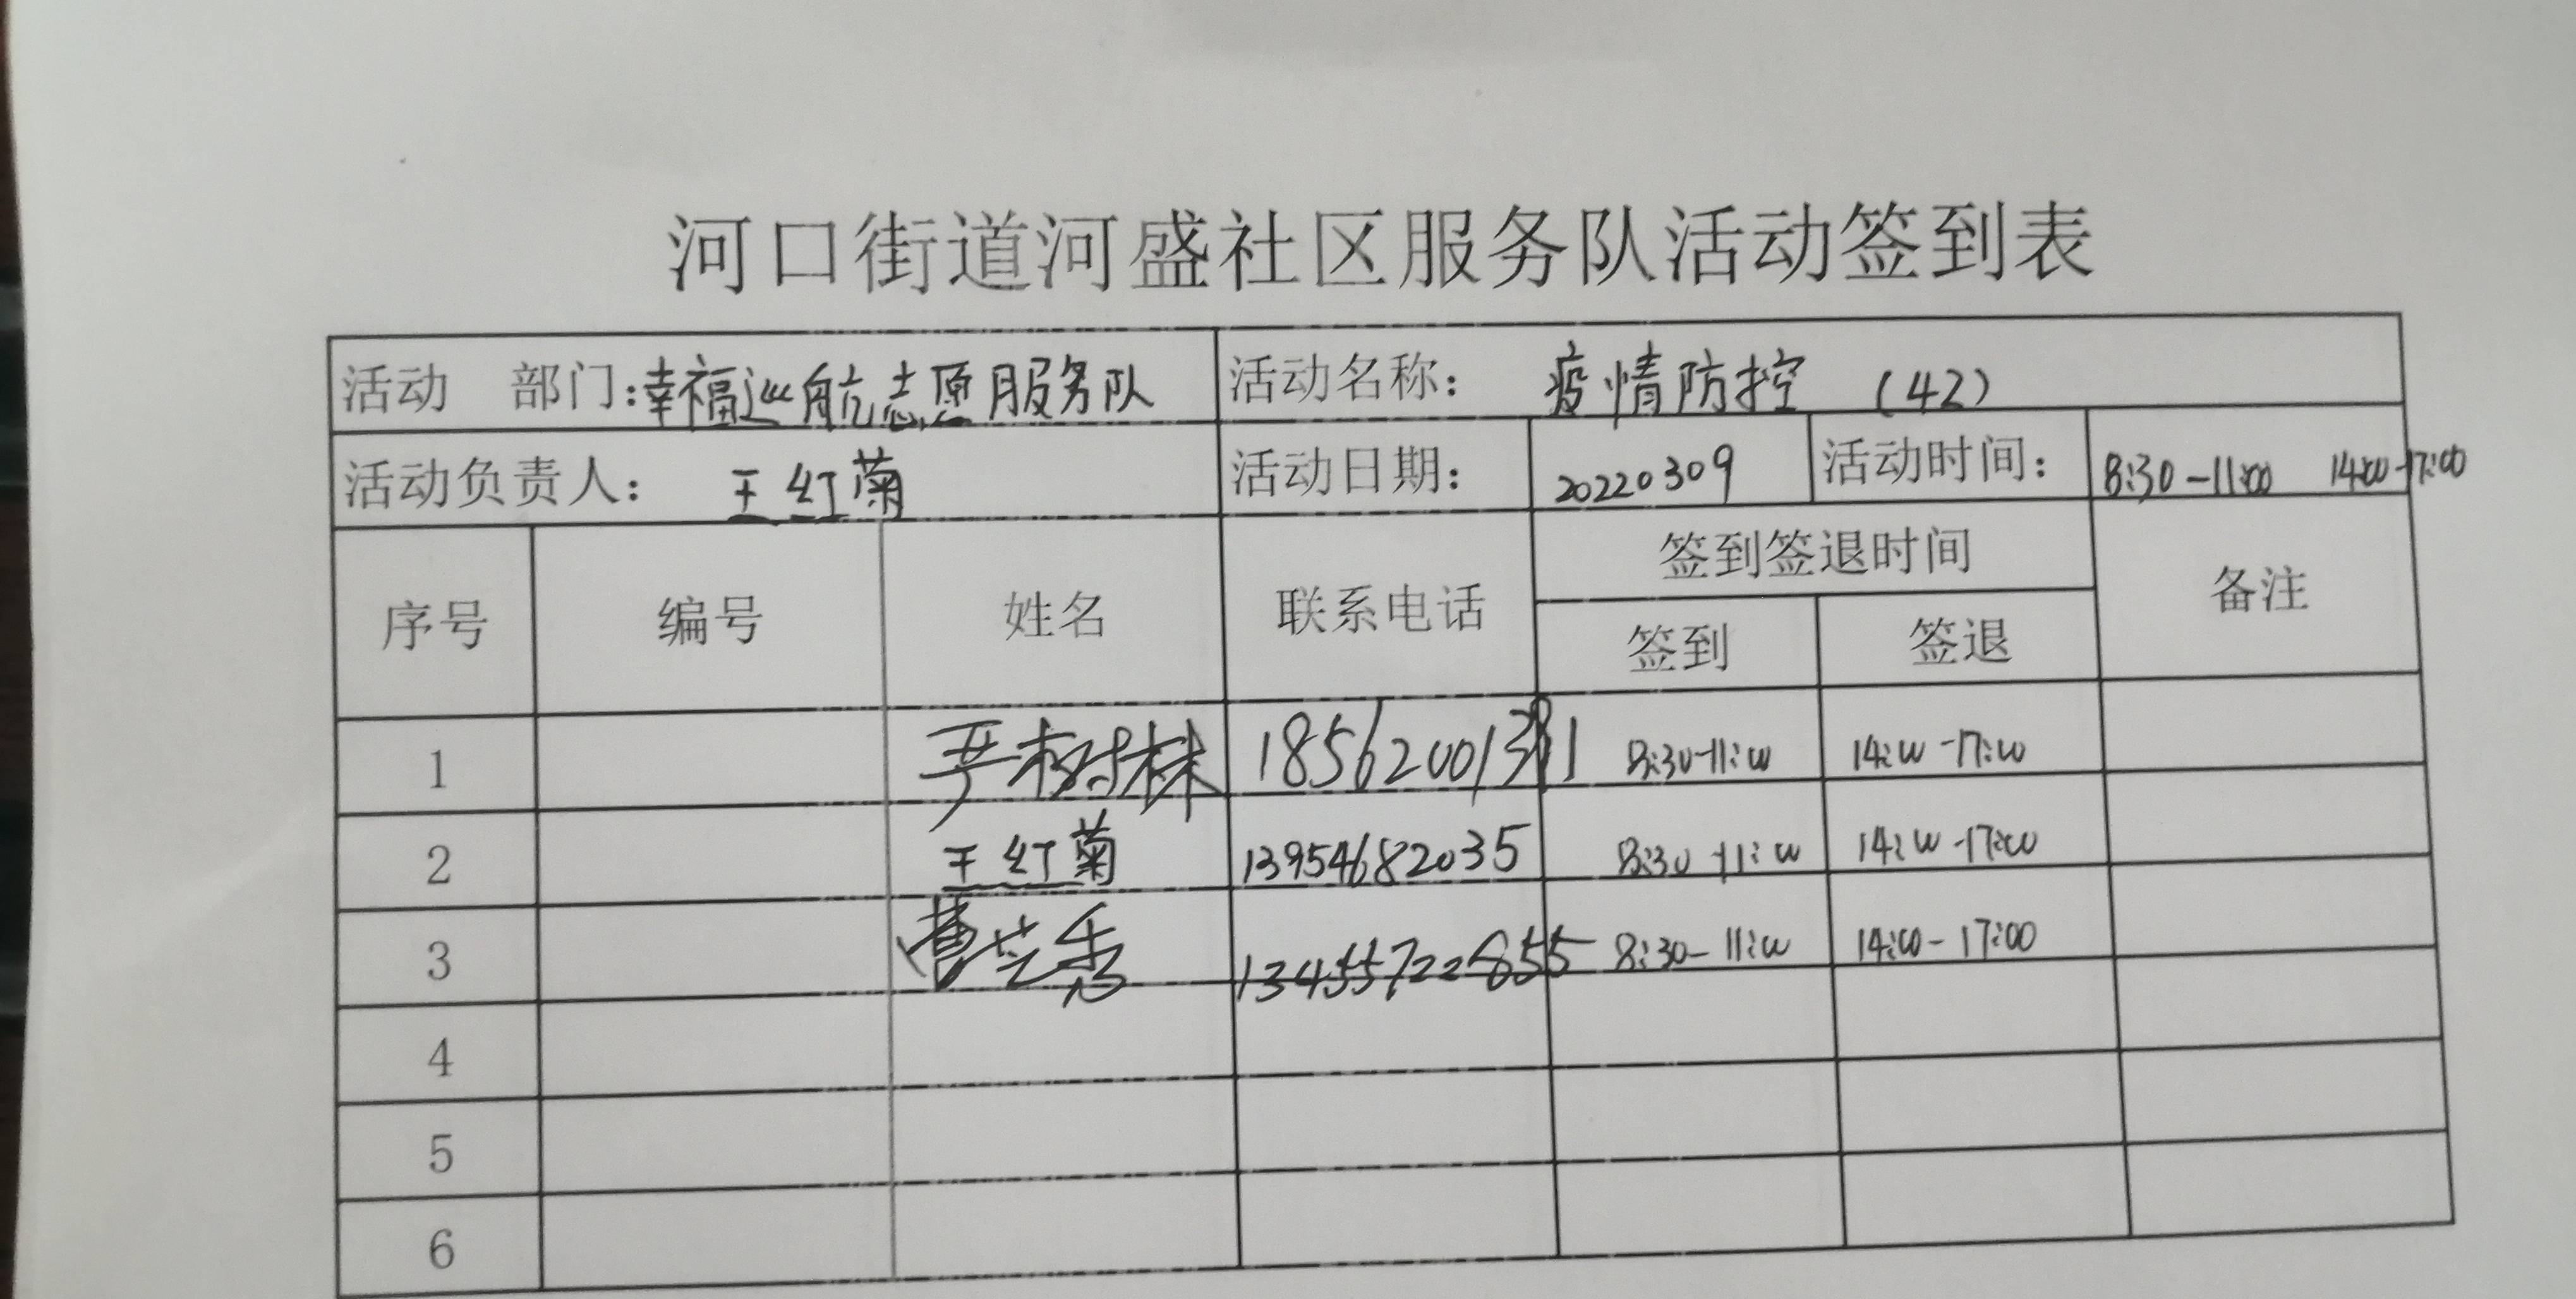 河口街道河盛社区服务队活动签到表
活动 部门:幸福巡航志愿服务队 活动名称: 疫情防控 (42)
活动负责人: 王红菊 活动日期: 20220309 活动时间: 8:30-11:00 14:00-17:00
序号 编号 姓名 联系电话 签到签退时间 备注
签到 签退
1 严树林 8:30-11:00 14:00-17:00
2 王红菊 13954682035 8:30-11:00 14:00-17:00
3 曹芝香 13455722855 8:30-11:00 14:00-17:00
4
5
6